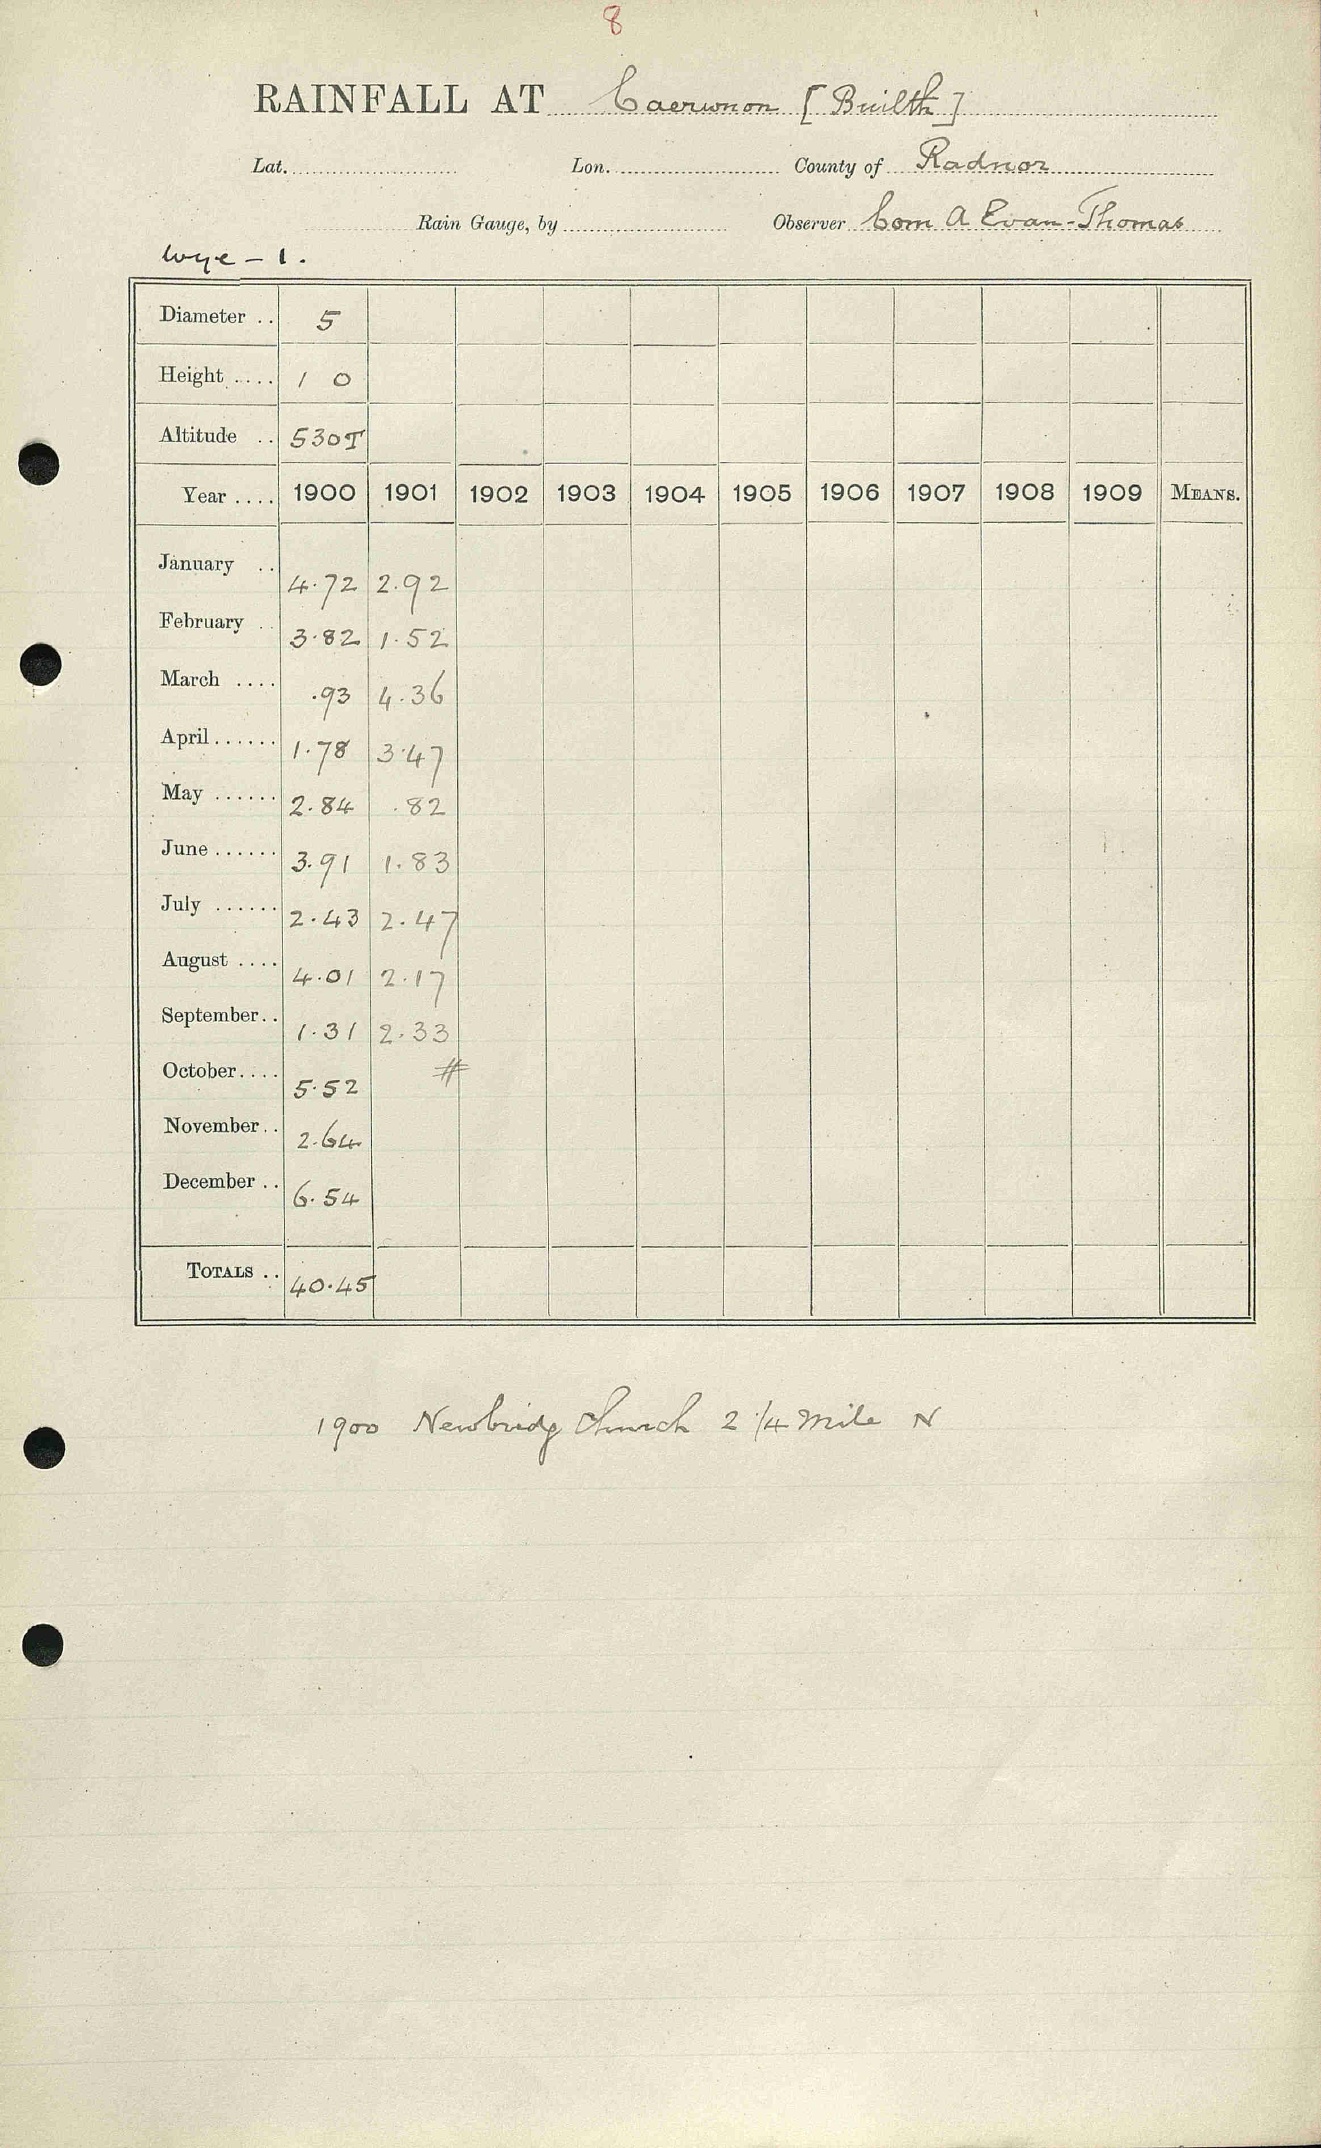 8
RAINFALL AT Caerwnon [Builth]
Lat. Lon. County of Radnor
Rain Gauge, by Observer Com A Evan-Thomas
Wye - 1.
Diameter .. 5
Height .... 1 0
Altitude .. 530T
Year .... 1900 1901 1902 1903 1904 1905 1906 1907 1908 1909 MEANS.
January .. 4.72 2.92
February .. 3.82 1.52
March .... .93 4.36
April ...... 1.78 3.47
May ...... 2.84 .82
June ...... 3.91 1.83
July ...... 2.43 2.47
August .... 4.01 2.17
September.. 1.31 2.33
October.... 5.52 #
November.. 2.64
December .. 6.54
TOTALS .. 40.45
1900 Newbridg Church 2 1/4 Mile N